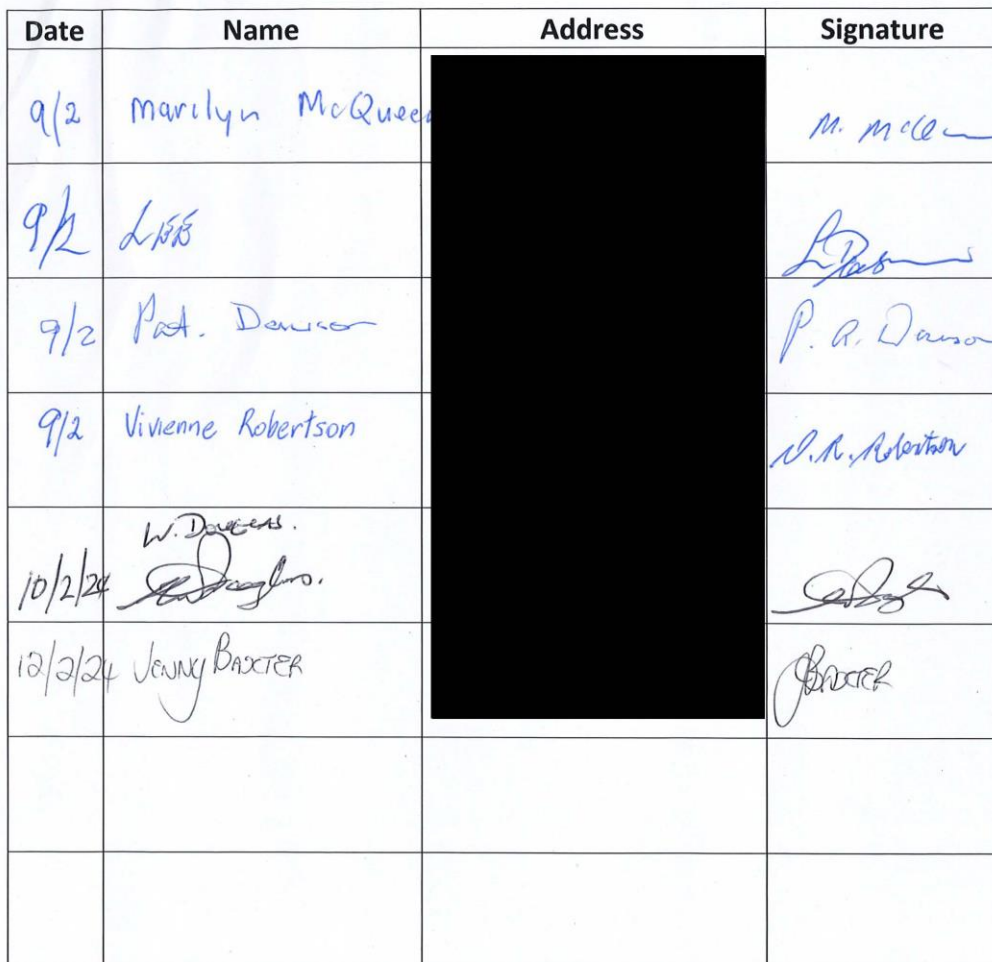 Date Name Address Signature
9/2 Marilyn McQueen
9/2 LEE
9/2 Pat. P. A. Dawson
9/2 Vivienne Robertson V.R. Robertson
W. Douglas.
10/2/24
12/2/24 JENNY BAXTER JBAXTER